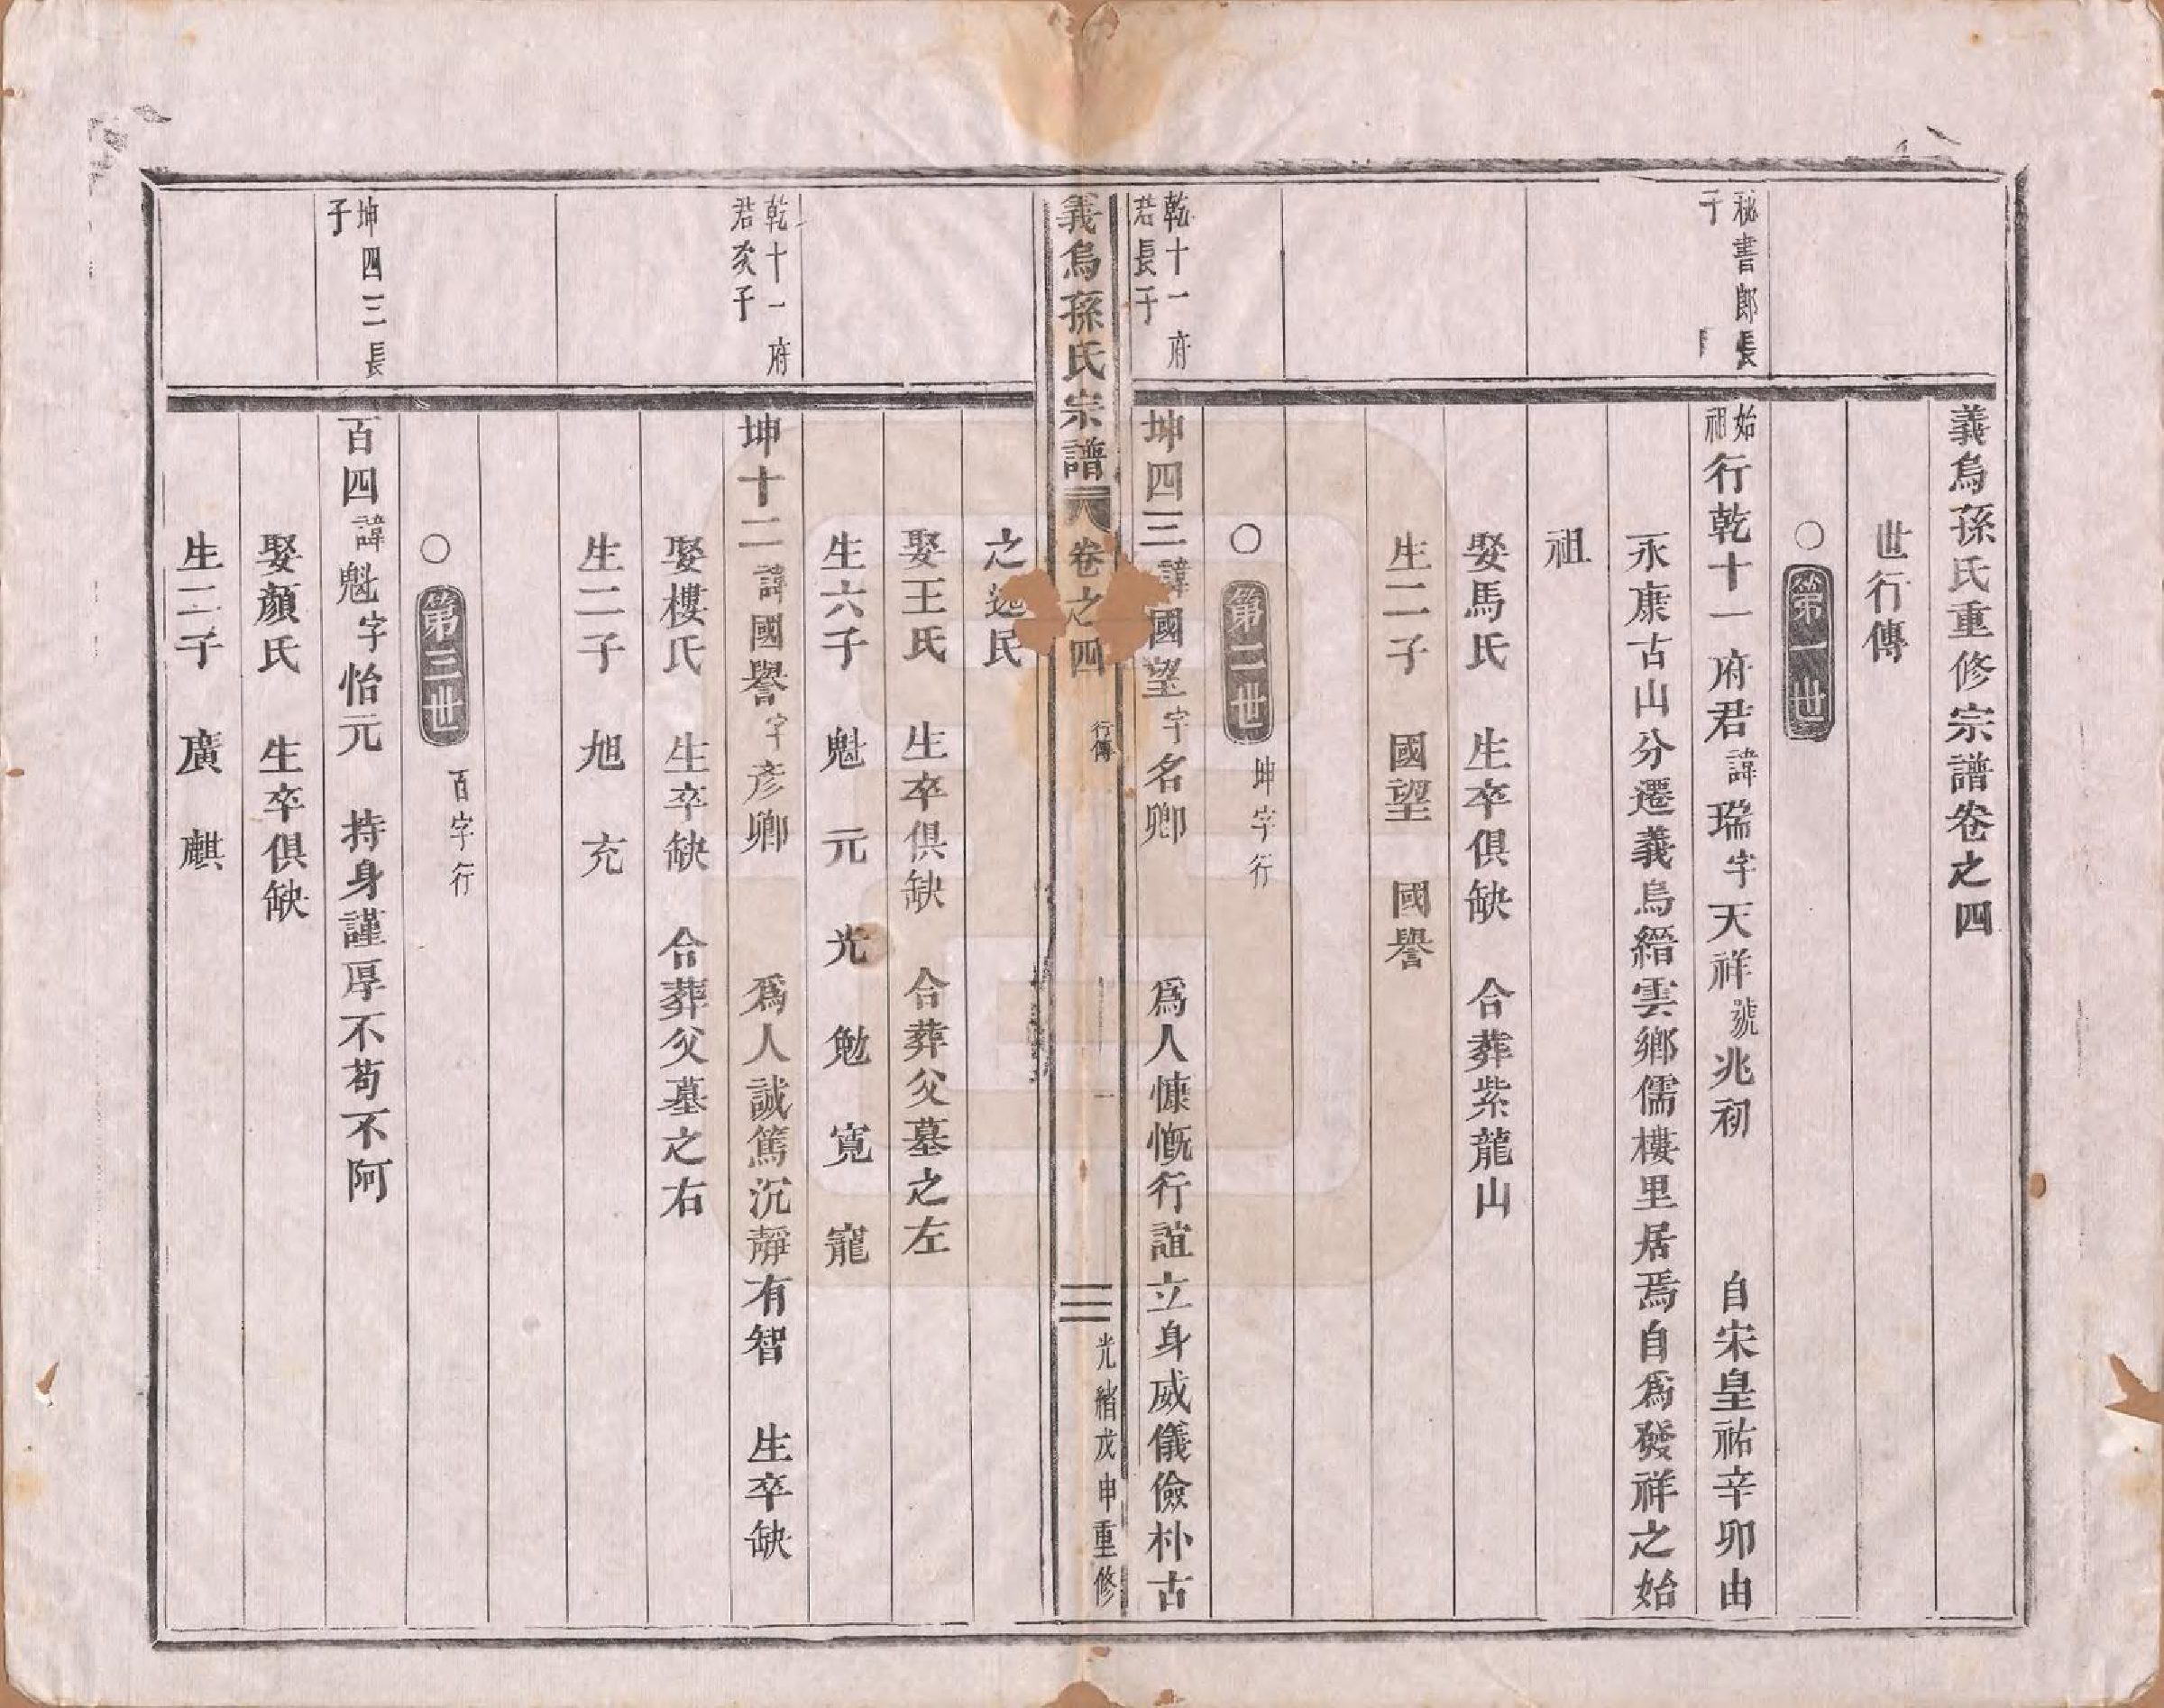 義烏孫氏重修宗譜卷之四
世行傳
○第一世
秘書郎長子
始祖行乾十一府君諱瑞字天祥號兆初 自宋皇祐辛卯由
永康古山分遷義烏縉雲鄉儒樓里居焉自爲發祥之始
祖
娶馬氏 生卒俱缺 合葬紫龍山
生二子 國望 國譽
○第二世 坤字行
乾十一府君長子
坤四三諱國望字名卿 爲人慷慨行誼立身威儀儉朴古
義烏孫氏宗譜 卷之四 行傳 一 光緒戊申重修
之逸民
娶王氏 生卒俱缺 合葬父墓之左
生六子 魁 元 光 勉 寬 寵
乾十一府君次子
坤十二諱國譽字彥卿 爲人誠篤沉靜有智 生卒缺
娶樓氏 生卒缺 合葬父墓之右
生二子 旭 充
○第三世 百字行
坤四三長子
百四諱魁字怡元 持身謹厚不苟不阿
娶顏氏 生卒俱缺
生二子 廣 麒